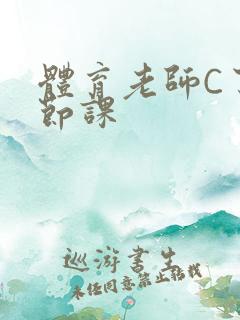 體育老師C了
節課
巡游書生
未经同意禁止转载